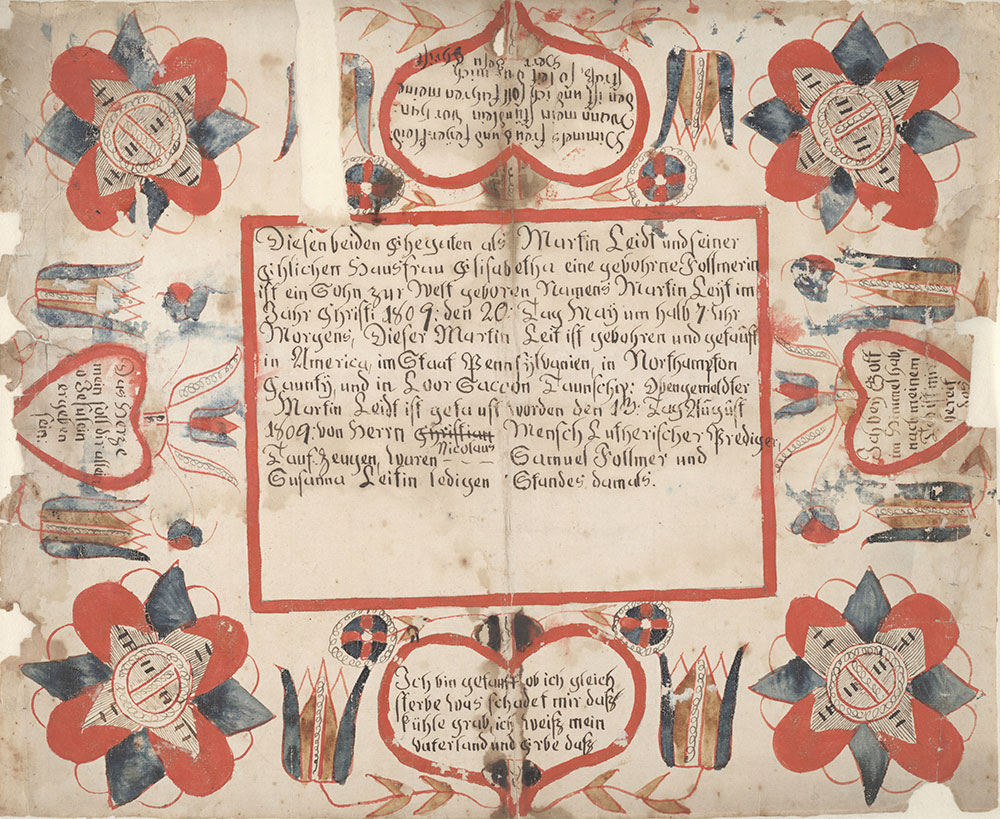 Himels freud und Hellen leid.
Wann mein stündlein vor han-
den ist und ich soll fahren meine
straß so leit du mich
Herr Jesu
Christ
Diesen beiden Ehegaten als Martin Leidt und seiner
Ehlichen Hausfrau Elisabetha eine gebohrne Follmerin
ist ein Sohn zur Welt geboren Namens Martin Leyt im
Jahr Christi 1809: den 20: Tag May um halb 7: Uhr
Morgens, Dieser Martin Leit ist gebohren und getaüft
in America, im Staat Pennsylvanien, in Northampton
Caunty, und in Loor Saccon Taunschip: Obengemeldter
Martin Leidt ist getauft worden den 1th: Tag August
1809: von Herrn Christian Mensch Lutherischer Prediger,
Nicolaus
Taufzeugen, waren — Samuel Follmer und
Susanna Leitin ledigen Standes damals.
Das Hertze
mein soll dir allei
o Jesulein
ergeben
sein.
Ich bey Gott
im Himmel hab,
nach meinem
Tod ist mir
bereit
das
Ich bin getauft ob ich gleich
sterbe was schadet mir daß
kühle grab, ich weiß mein
Vaterland und Erbe daß